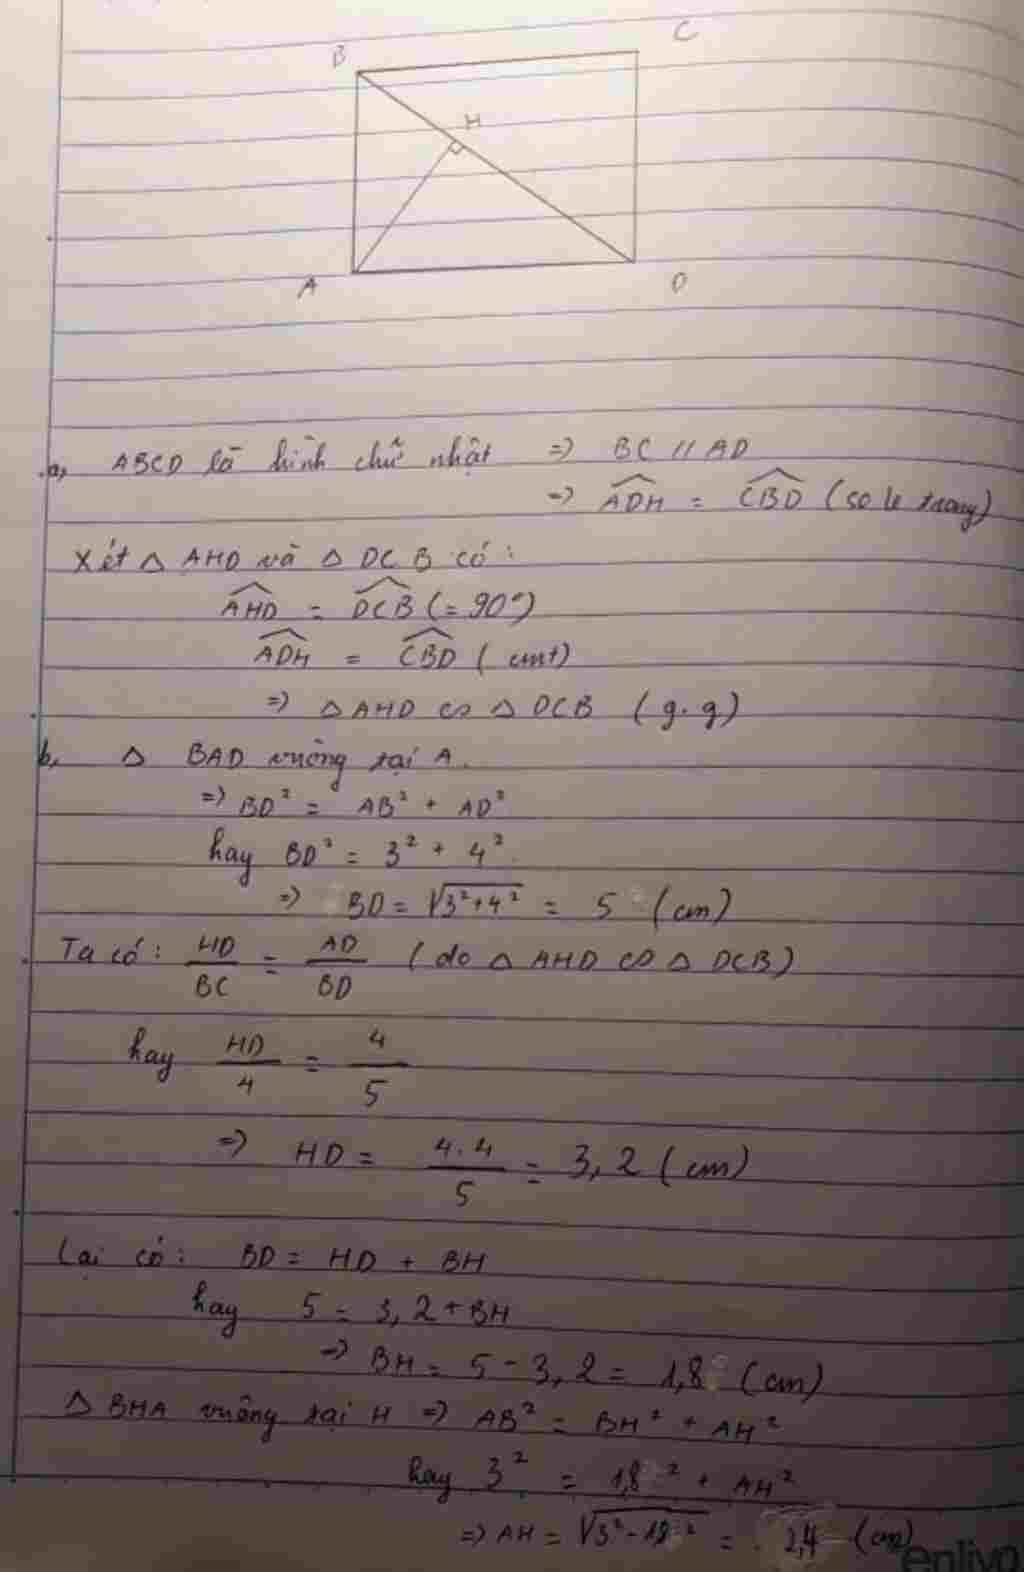 B
C
H
A
D
a, ABCD là hình chữ nhật => BC // AD
=> \widehat{ADH} = \widehat{CBD} (so le trong)
Xét △ AHD và △ DCB có:
\widehat{AHD} = \widehat{DCB} (= 90°)
\widehat{ADH} = \widehat{CBD} (cmt)
=> △ AHD ∽ △ DCB (g.g)
b, △ BAD vuông tại A.
=> BD² = AB² + AD²
hay BD² = 3² + 4²
=> BD = √(3²+4²) = 5 (cm)
Ta có: HD/BC = AD/BD (do △ AHD ∽ △ DCB)
hay HD/4 = 4/5
=> HD = 4.4/5 = 3,2 (cm)
Lại có: BD = HD + BH
hay 5 = 3,2 + BH
=> BH = 5 - 3,2 = 1,8 (cm)
△ BHA vuông tại H => AB² = BH² + AH²
hay 3² = 1,8² + AH²
=> AH = √(3² - 1,8²) = 2,4 (cm)